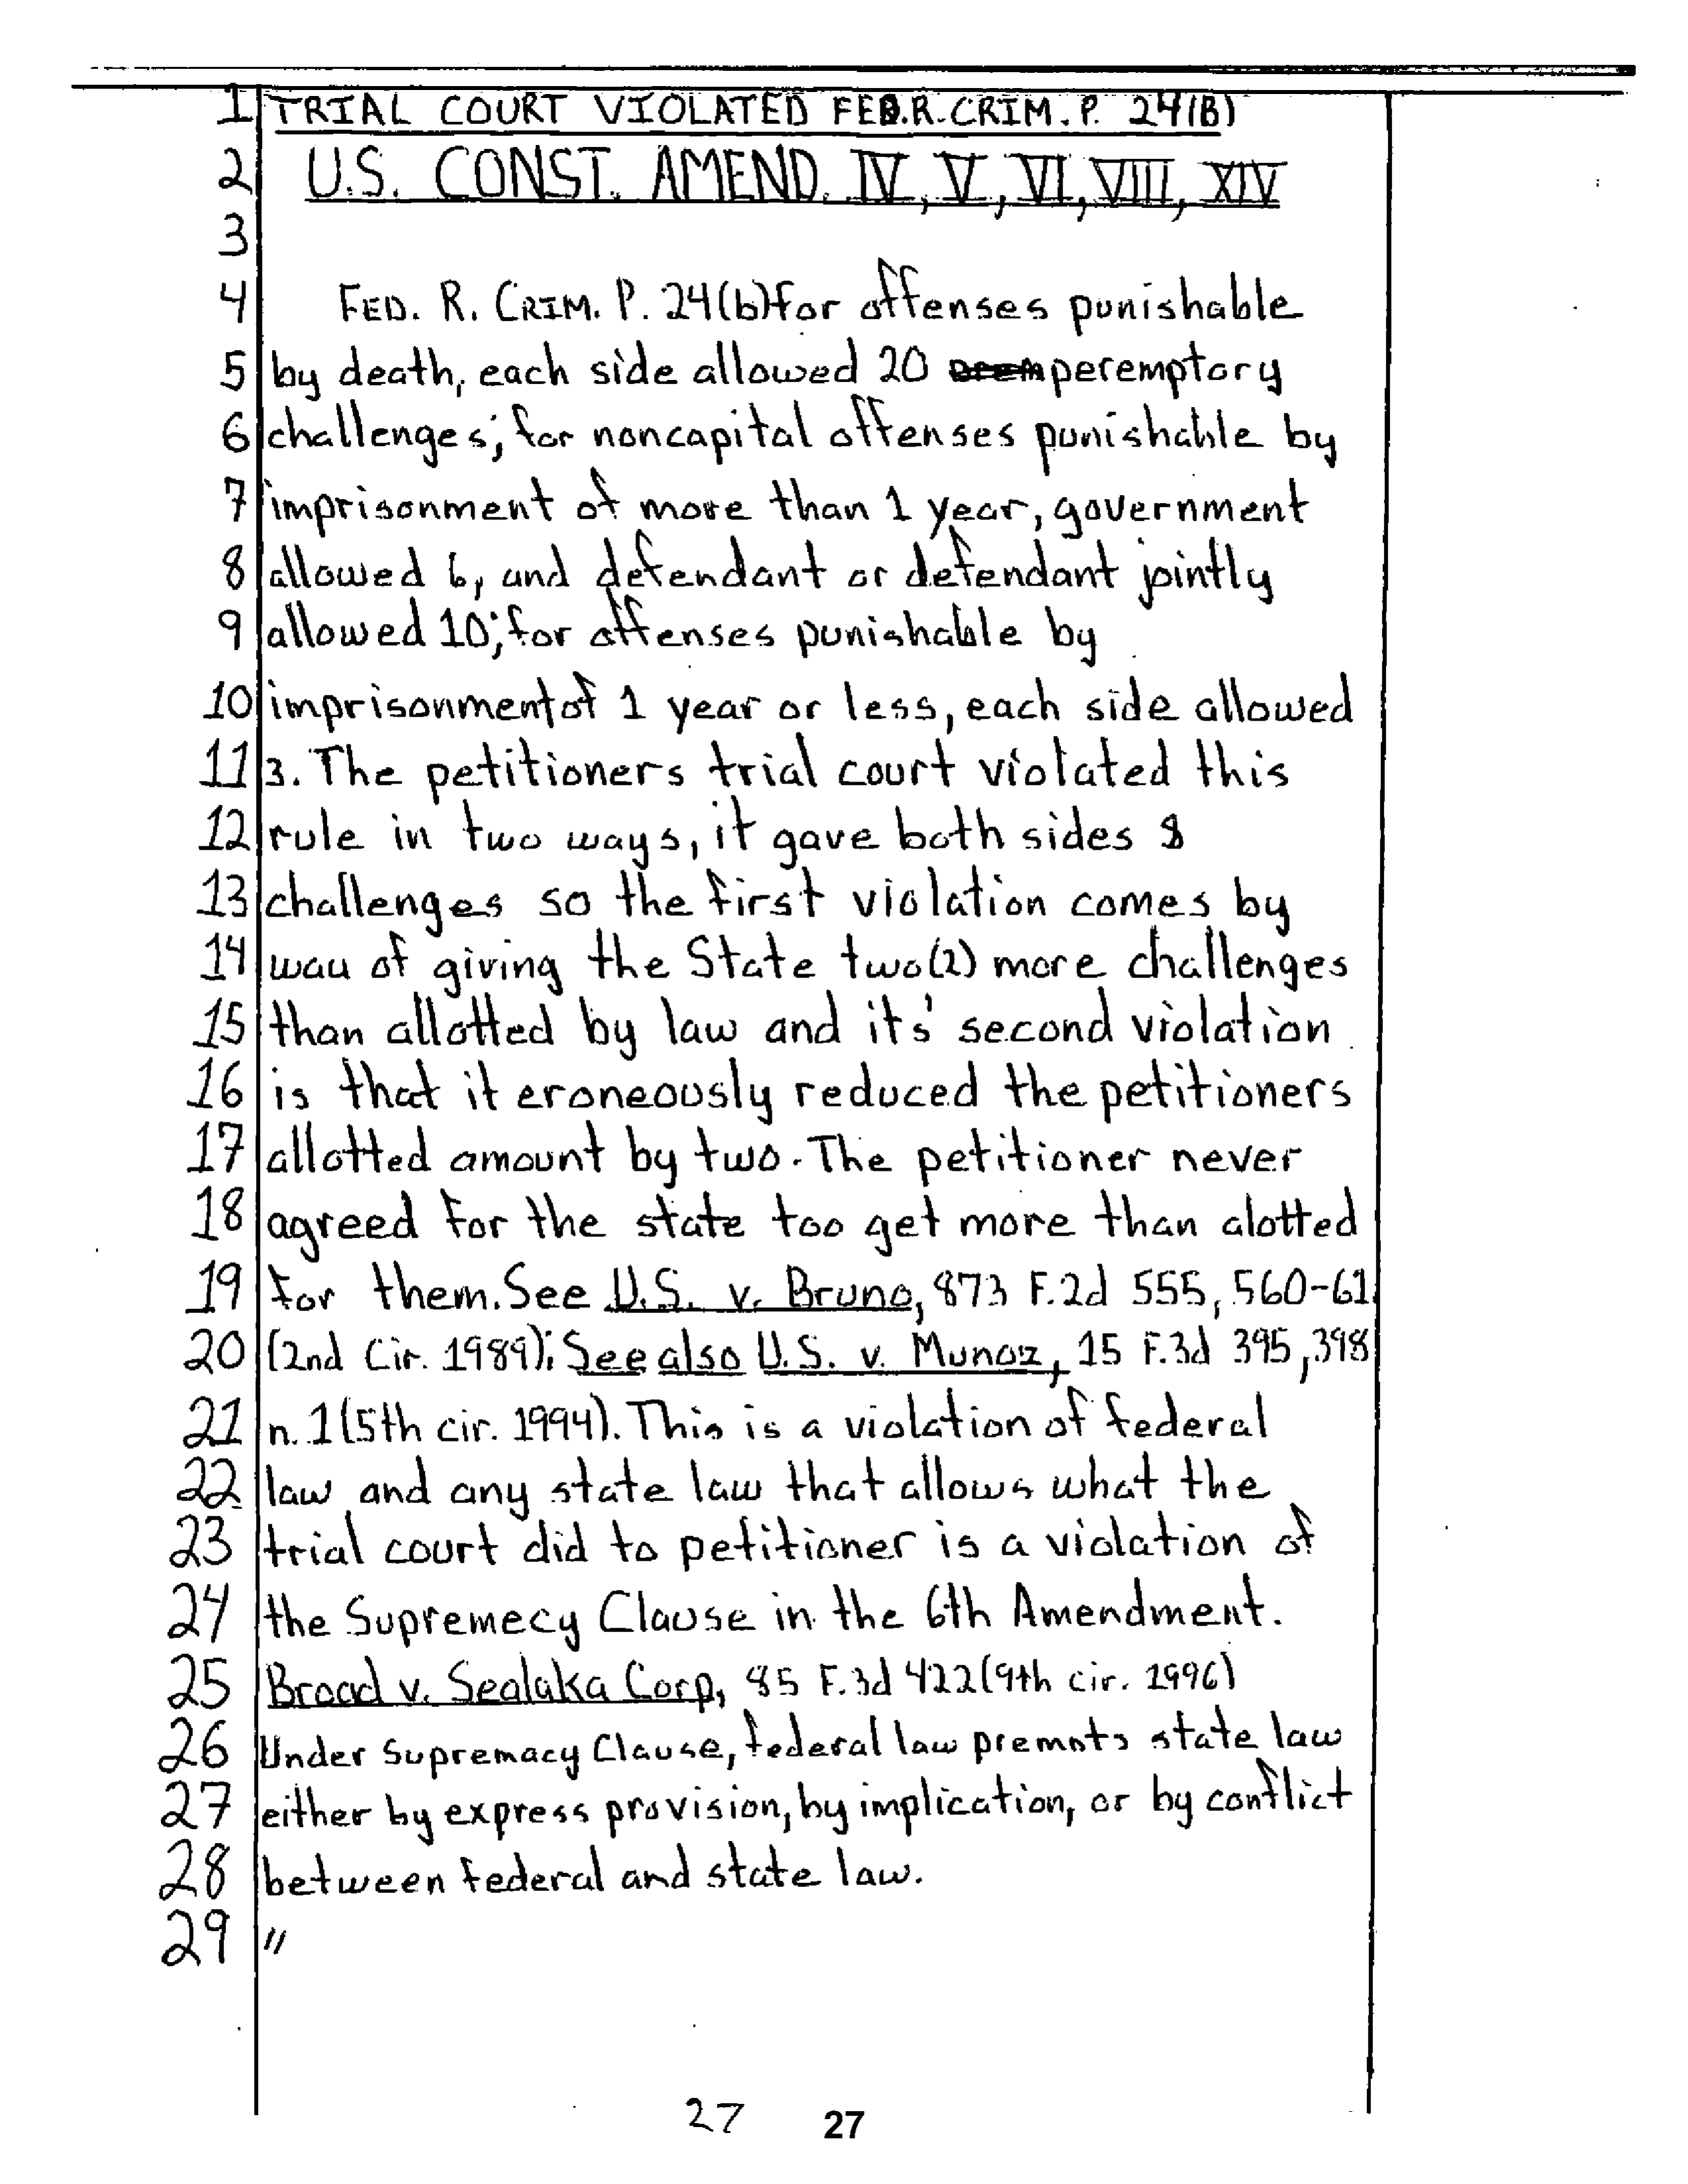 1 TRIAL COURT VIOLATED FED.R.CRIM.P. 24(B)
2 U.S. CONST. AMEND. IV, V, VI, VIII, XIV
3
4 FED. R. CRIM. P. 24(b) for offenses punishable
5 by death, each side allowed 20 peremptory
6 challenges; for noncapital offenses punishable by
7 imprisonment of more than 1 year, government
8 allowed 6, and defendant or defendant jointly
9 allowed 10; for offenses punishable by
10 imprisonment of 1 year or less, each side allowed
11 3. The petitioners trial court violated this
12 rule in two ways, it gave both sides 8
13 challenges so the first violation comes by
14 wau of giving the State two(2) more challenges
15 than allotted by law and its' second violation
16 is that it eroneously reduced the petitioners
17 allotted amount by two. The petitioner never
18 agreed for the state too get more than alotted
19 for them. See U.S. v. Bruno, 873 F.2d 555, 560-61
20 (2nd Cir. 1989); See also U.S. v. Munoz, 15 F.3d 395, 398
21 n. 1 (5th cir. 1994). This is a violation of federal
22 law and any state law that allows what the
23 trial court did to petitioner is a violation of
24 the Supremecy Clause in the 6th Amendment.
25 Broad v. Sealaka Corp, 85 F.3d 422 (9th cir. 1996)
26 Under Supremacy Clause, federal law premnts state law
27 either by express provision, by implication, or by conflict
28 between federal and state law.
29 "
27 27